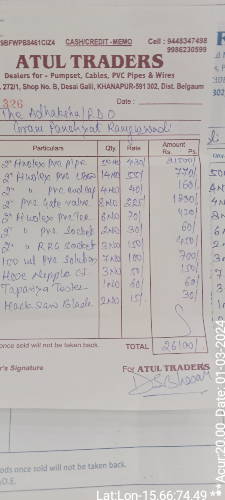 SBFWPB8461C1Z4 CASH/CREDIT-MEMO Cell : 9448347498
9986230599
ATUL TRADERS
Dealers for - Pumpset, Cables, PVC Pipes & Wires
272/1, Shop No. B, Desai Galli, KHANAPUR-591302, Dist. Belgaum
326 Date :
The Adhakshal PDO
Gram Panchyat
Particulars Qty. Rate Amount Rs. Ps.
2" pvc pipe 50NO 430/ 21500/
2" pvc 14NO 55/ 700/
2" " pvc endcap 4NO 40/ 160/
2" pvc Gate valve 8NO 225/ 1800/
2" pvc Tee 6NO 70/ 420/
2" " pvc Socket 2NO 30/ 60/
2" " RRG Socket 3NO 150/ 450/
100 ml pvc Solution 7NO 100/ 700/
Hose Nipple 3NO 50/ 150/
Tester 1NO 60/ 60/
Hack Saw Blade 2NO 15/ 30/
once sold will not be taken back. TOTAL 26100/
r's Signature For ATUL TRADERS
ods once sold will not be taken back.
O.E.
Lat:Lon-15.66:74.49
***Acur:20.00 Date: 01-03-2024